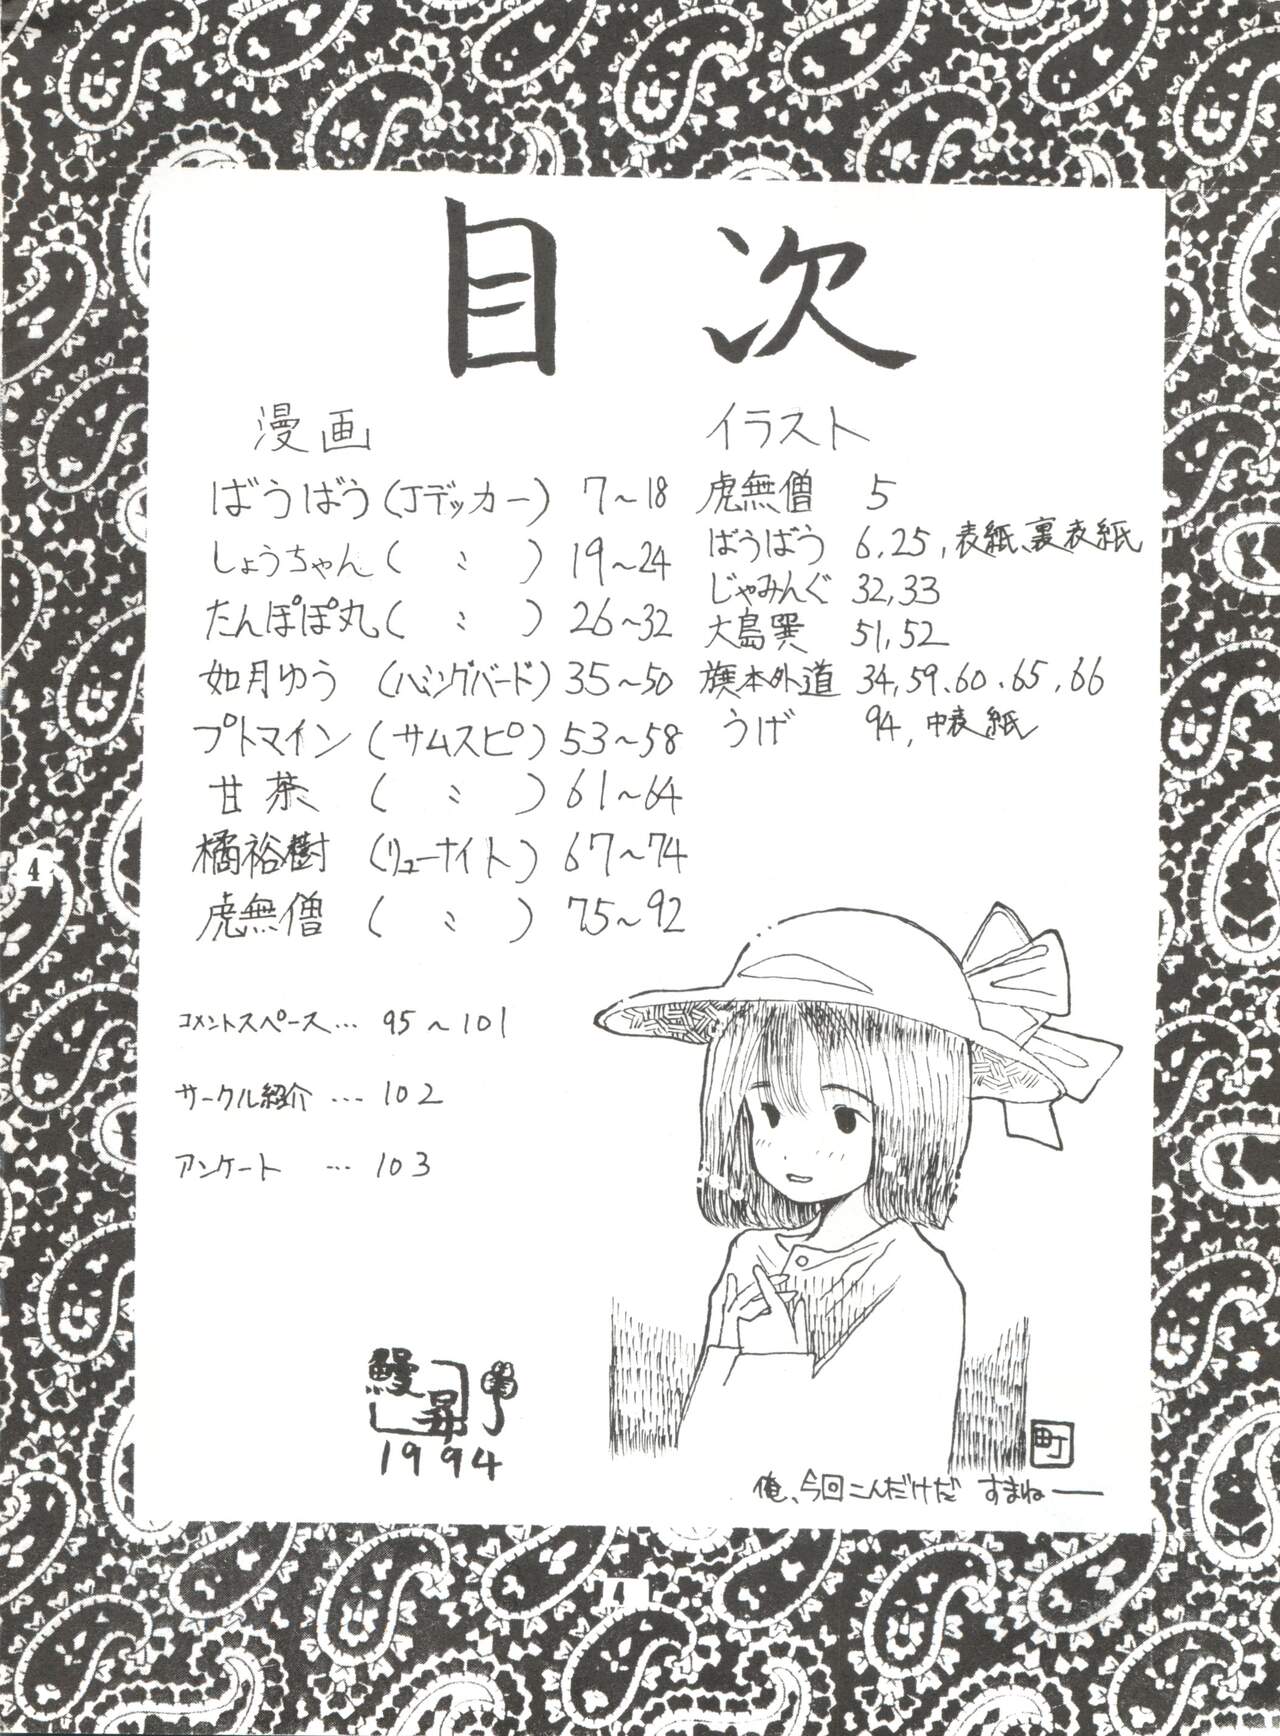 目次
漫画
ばうばう (Jデッカー) 7～18
しょうちゃん ( 〃 ) 19～24
たんぽぽ丸 ( 〃 ) 26～32
如月ゆう (ハミングバード) 35～50
プトマイン (サムスピ) 53～58
甘茶 ( 〃 ) 61～64
橘裕樹 (リューナイト) 67～74
虎無僧 ( 〃 ) 75～92
イラスト
虎無僧 5
ばうばう 6,25,表紙、裏表紙
じゃみんぐ 32,33
大島巽 51,52
旗本外道 34,59,60,65,66
うげ 94,中表紙
コメントスペース… 95～101
サークル紹介 … 102
アンケート … 103
鰻昇
1994
町
俺、今回こんだけだ すまねー
4
4